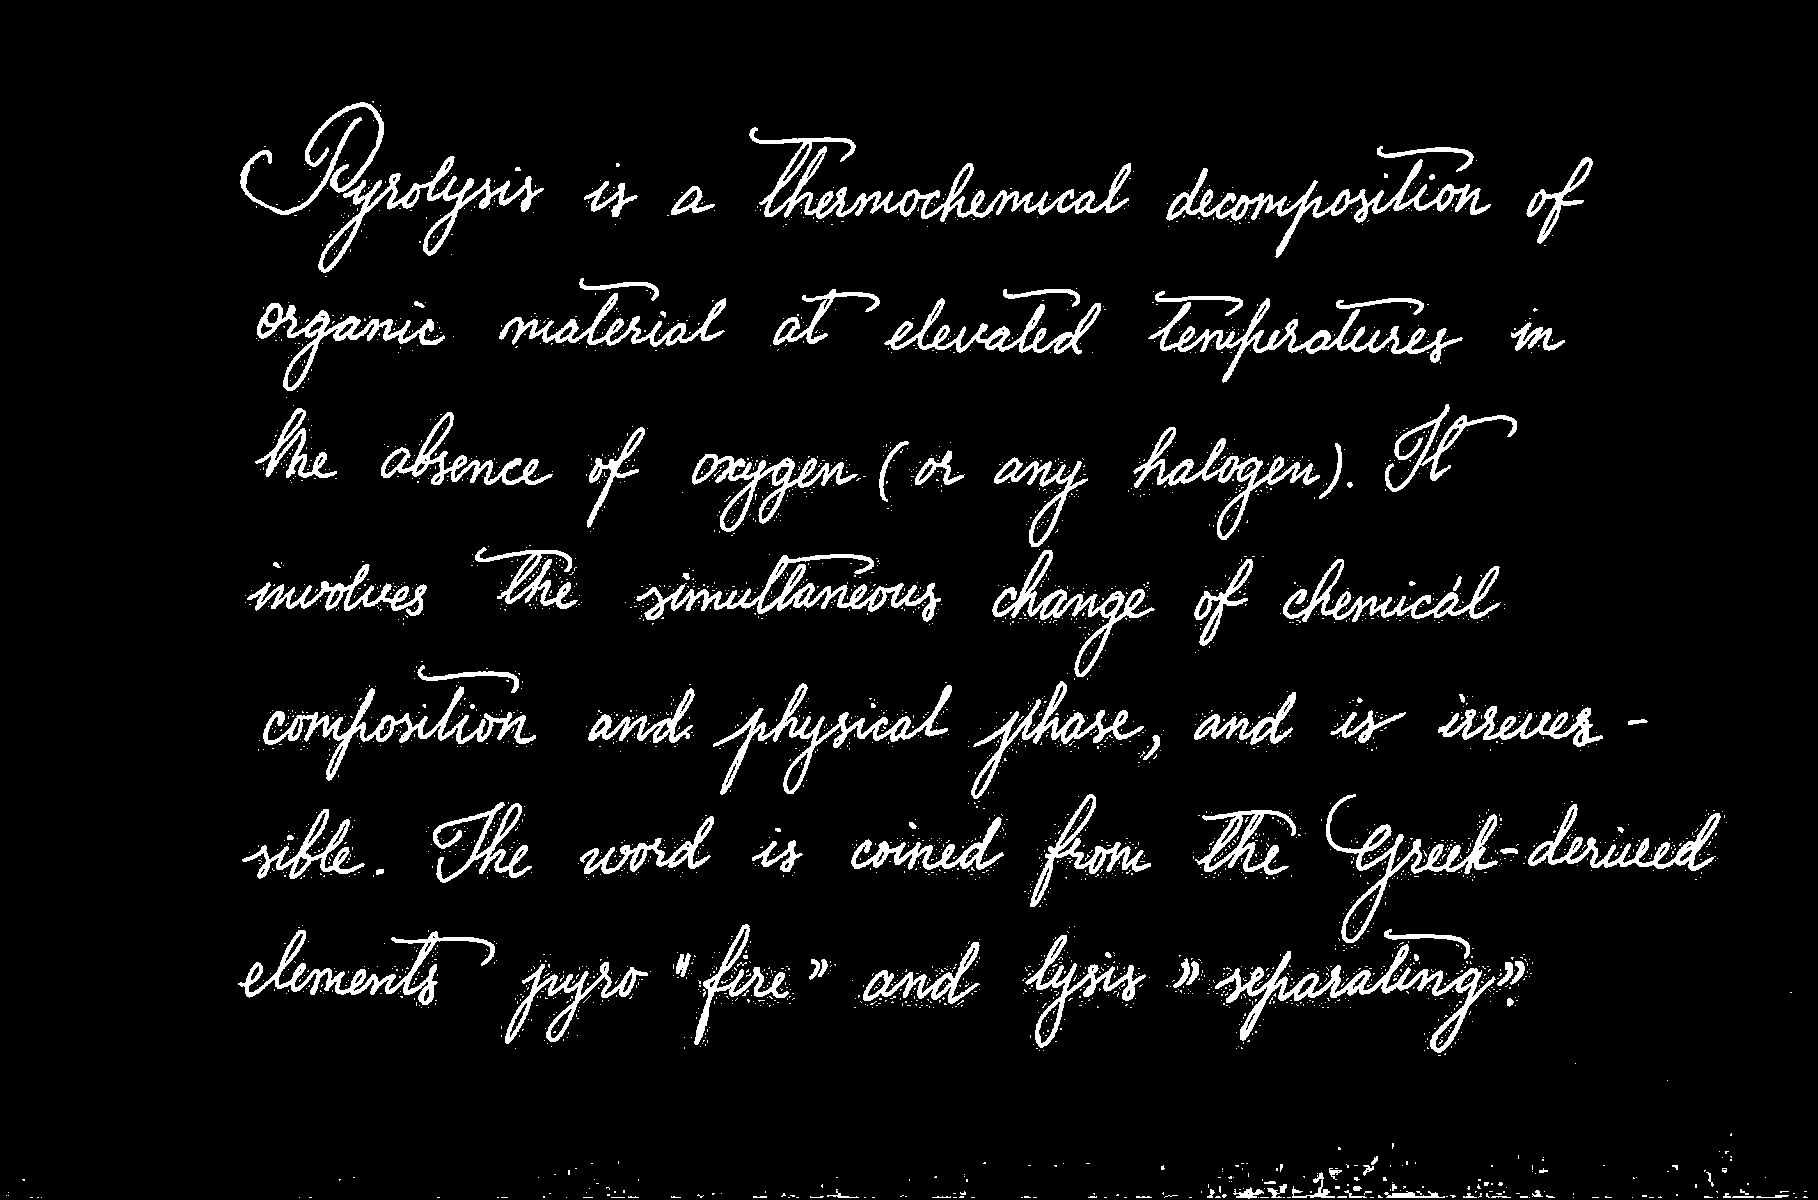 Pyrolysis is a thermochemical decomposition of
organic material at elevated temperatures in
the absence of oxygen (or any halogen). It
involves the simultaneous change of chemical
composition and physical phase, and is irrever-
sible. The word is coined from the Greek-derived
elements pyro "fire" and lysis "separating".